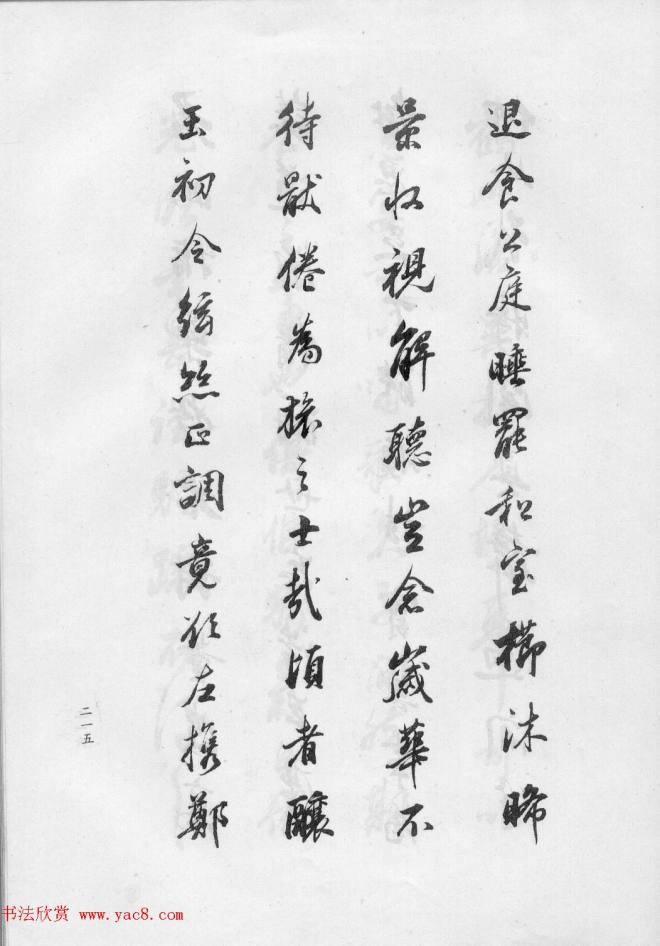 退食公庭睡罷和室櫛沐晞
景收視解聽豈念歲華不
待猒倦為旅之士哉頃者釀
玉初令絃絲正調竟欲左攜鄭
二一五
书法欣赏 www.yac8.com